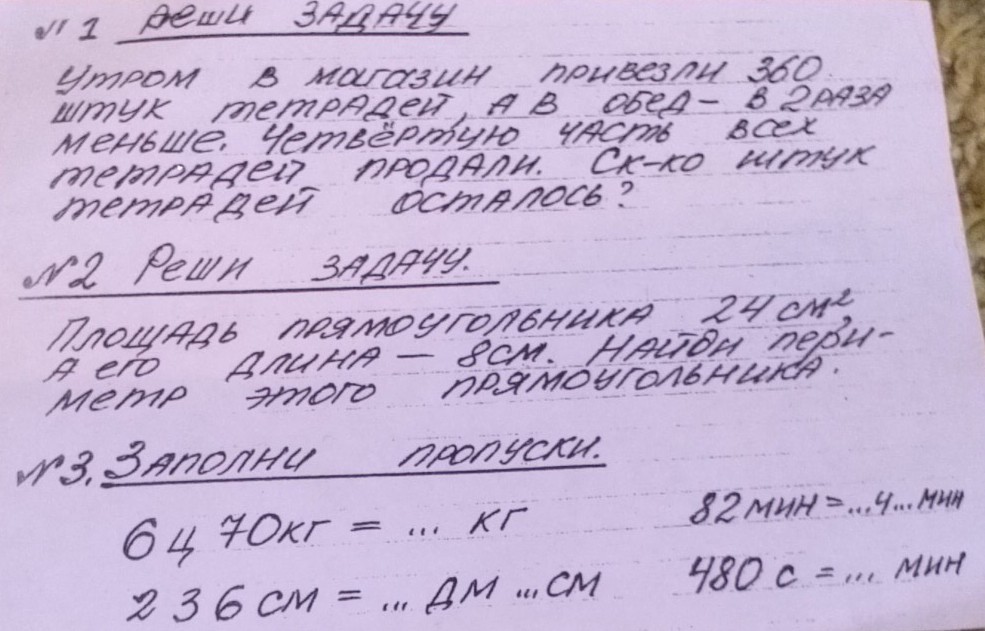 №1 Реши задачу
Утром в магазин привезли 360
штук тетрадей, а в обед - в 2 раза
меньше. Четвёртую часть всех
тетрадей продали. Ск-ко штук
тетрадей осталось?
№2 Реши задачу.
Площадь прямоугольника 24 см²,
а его длина — 8см. Найди пери-
метр этого прямоугольника.
№3. Заполни пропуски.
6 ц 70кг = ... кг 82 мин = ...ч... мин
236 см = ... дм ...см 480 с = ... мин